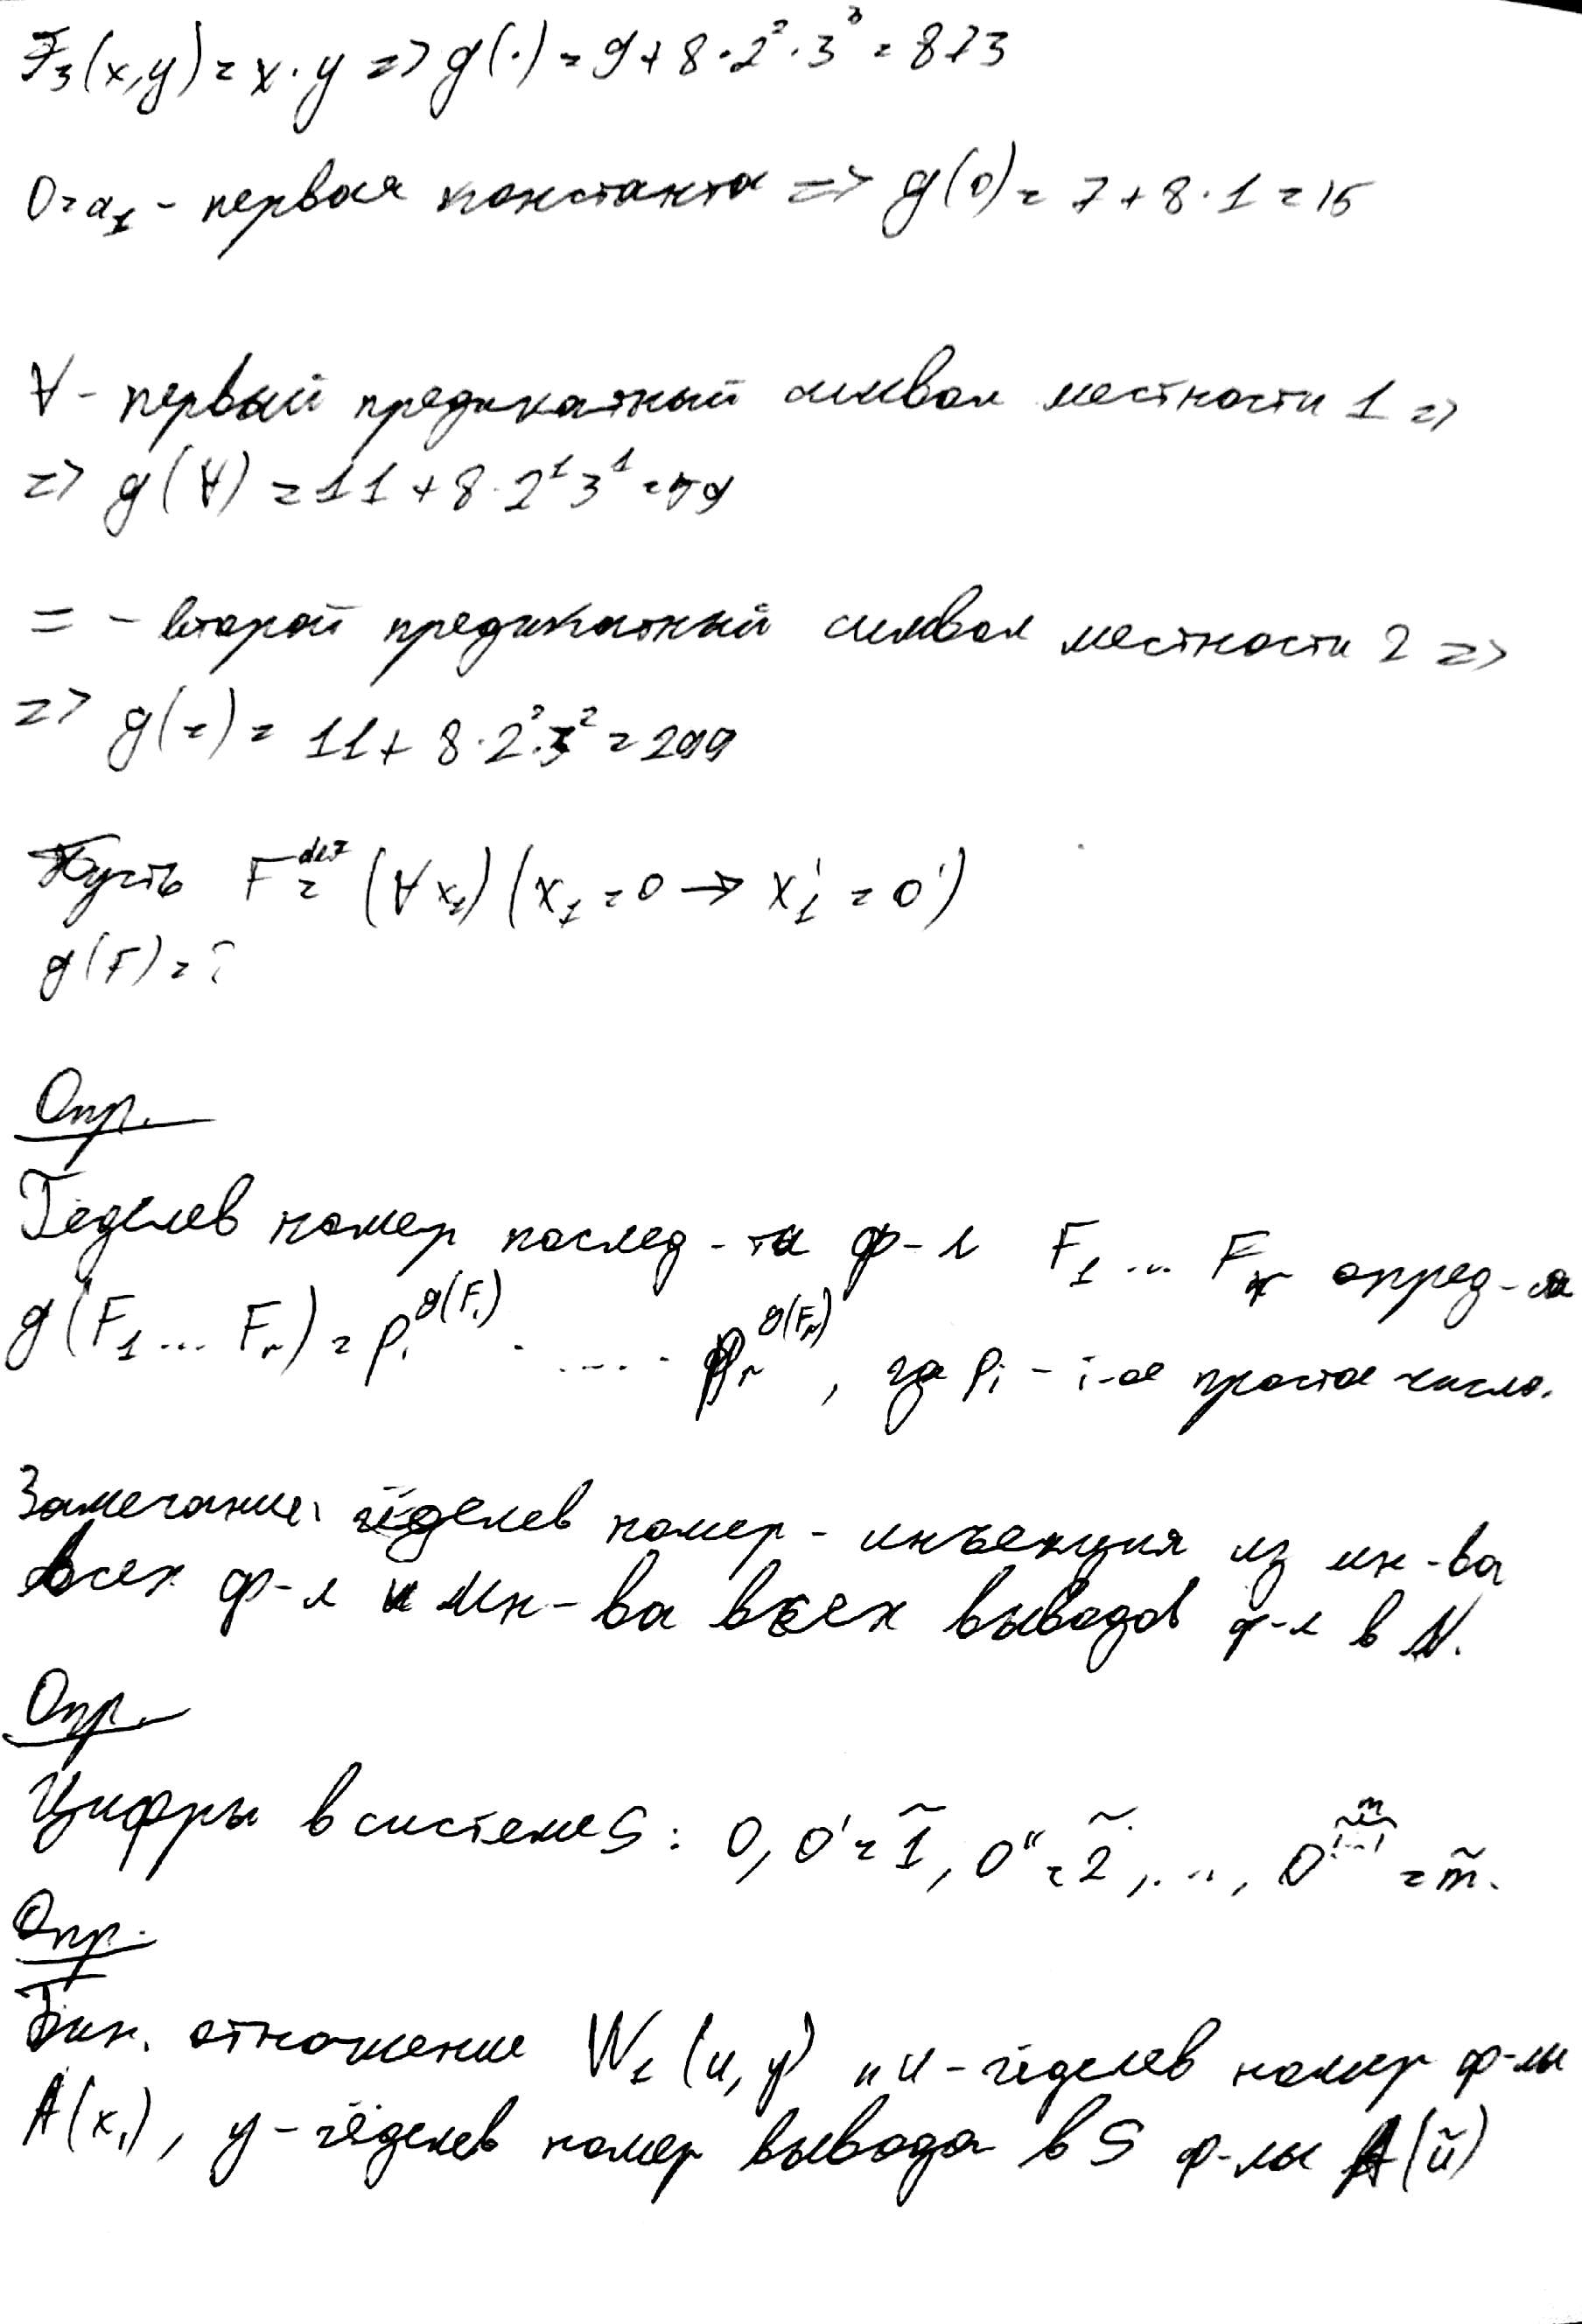 F₃(x,y) = x·y => g(·) = 9 + 8·2²·3³ = 873
0 = a₁ - первая константа => g(0) = 7 + 8·1 = 15
∀ - первый предикатный символ местности 1 =>
=> g(∀) = 11 + 8·2¹3¹ = 59
= - второй предикатный символ местности 2 =>
=> g(=) = 11 + 8·2²·3² = 299
Пусть F =def (∀x₁)(x₁ = 0 → x₁' = 0')
g(F) = ?
Опр.
Гёделев номер послед-ти ф-л F₁ ... Fᵣ опред-ся
g(F₁ ... Fᵣ) = p₁^g(F₁) · .... · pᵣ^g(Fᵣ), где pᵢ - i-ое простое число.
Замечание: гёделев номер - инъекция из мн-ва
всех ф-л и мн-ва всех выводов ф-л в N.
Опр.
Цифры в системе S: 0, 0' = 1̃, 0'' = 2̃, ..., 0^(m) = m̃.
Опр.
Бин. отношение W₁(u,y) "u - гёделев номер ф-лы
A(x₁), y - гёделев номер вывода в S ф-лы A(ũ)